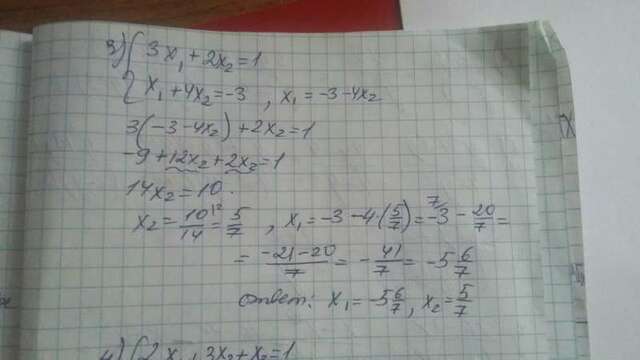 3) { 3x₁ + 2x₂ = 1
x₁ + 4x₂ = -3 , x₁ = -3 - 4x₂
3(-3 - 4x₂) + 2x₂ = 1
-9 + 12x₂ + 2x₂ = 1
14x₂ = 10.
x₂ = 10/14 = 5/7 , x₁ = -3 - 4(5/7) = -3 - 20/7 =
= (-21 - 20)/7 = - 41/7 = -5 6/7
Ответ: x₁ = -5 6/7 , x₂ = 5/7
4) { 2x₁ + 3x₂ + x₂ = 1